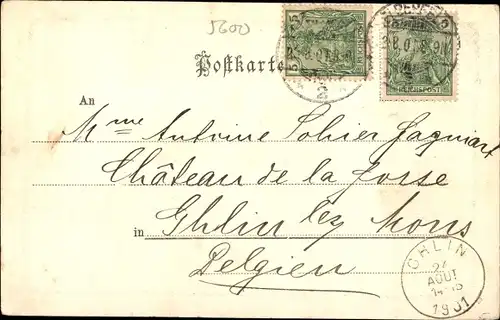 5600
Postkarte
An
Mme Antoine Sohier Gagniart
Château de la Fosse
in Ghlin lez Mons
Belgien
GHLIN
24
AOUT
1901